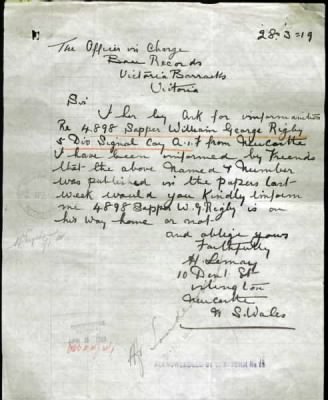 28.3=19
The Officer in Charge
Base Records
Victoria Barracks
Victoria
Sir
I her by Ask for information
Re 4898 Sapper William George Rigby
5 Div Signal Coy A.I.F from Newcastle
I have been informed by Friends
that the above Named & Number
was published in the Papers last
week would you Kindly inform
me 4898 Sapper W.G Rigby is on
his way home or not
and oblige yours
Faithfully
10 Dent St
Islington
Newcastle
N S. Wales
ACKNOWLEDGED BY